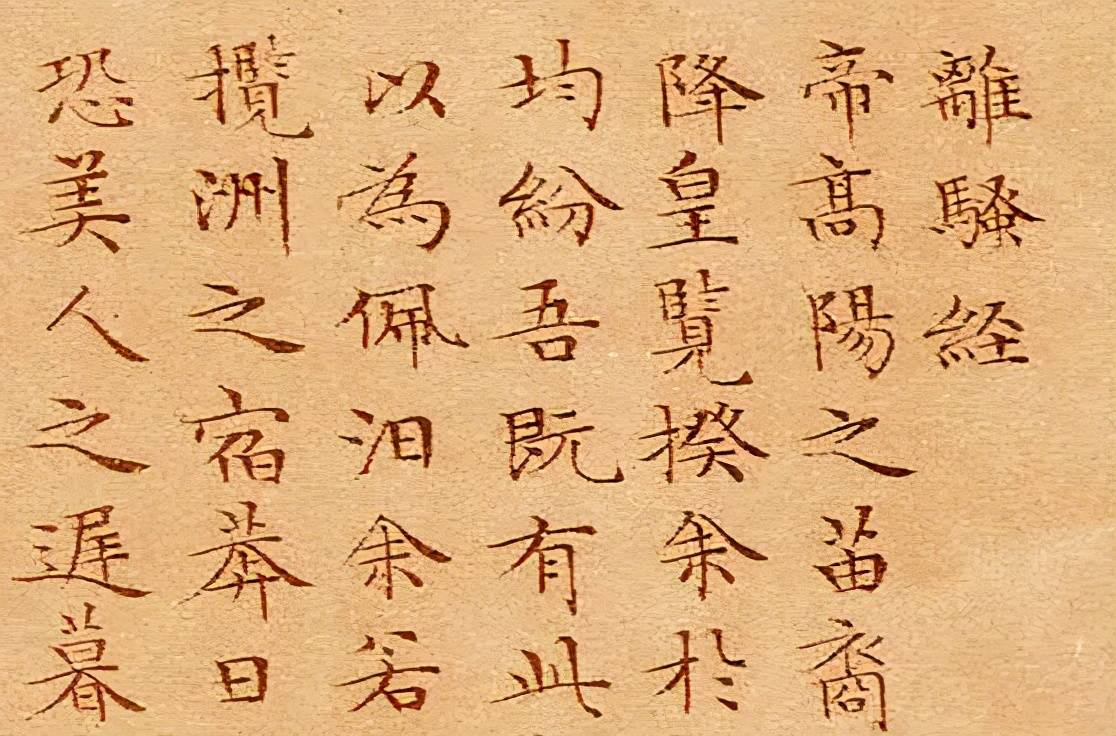 離騷經
帝高陽之苗裔
降皇覽揆余於
均紛吾既有此
以為佩汩余若
攬洲之宿莽日
恐美人之遲暮